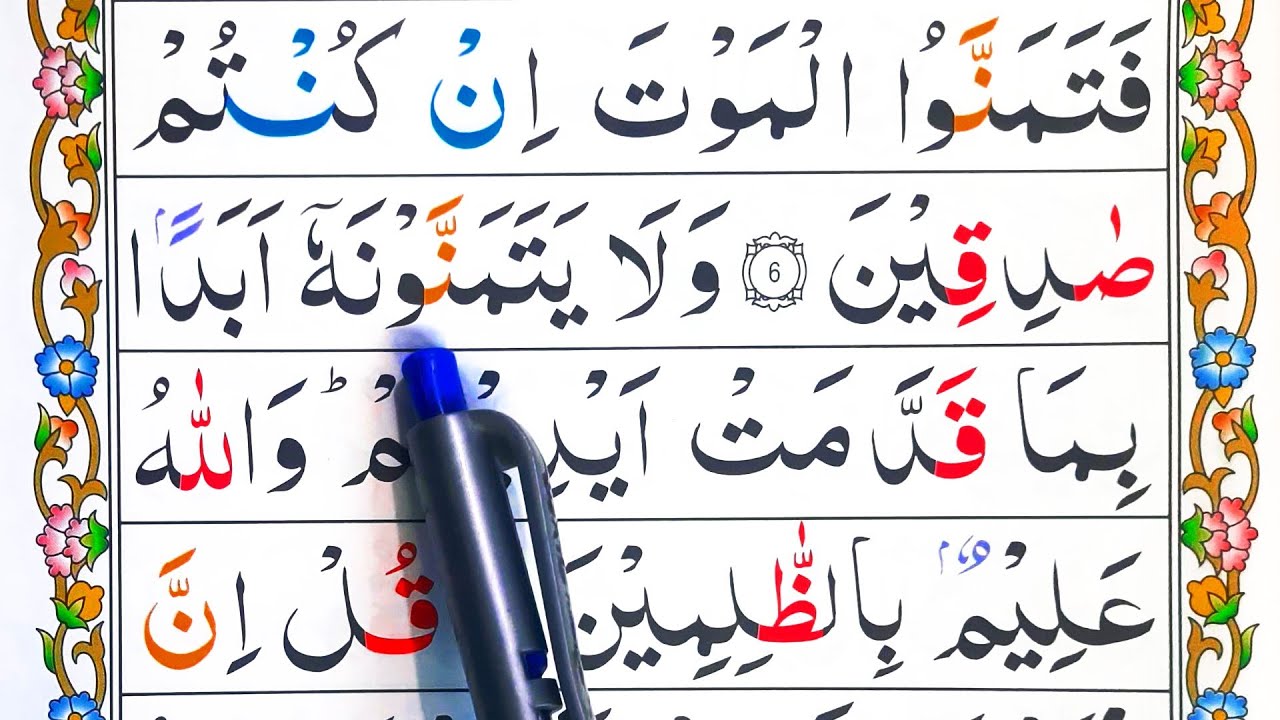 فَتَمَنَّوُا الْمَوْتَ اِنْ كُنْتُمْ
صٰدِقِيْنَ 6 وَلَا يَتَمَنَّوْنَهٗۤ اَبَدًۢا
بِمَا قَدَّمَتْ وَاللّٰهُ
عَلِيْمٌۢ بِالظّٰلِمِيْنَ قُلْ اِنَّ